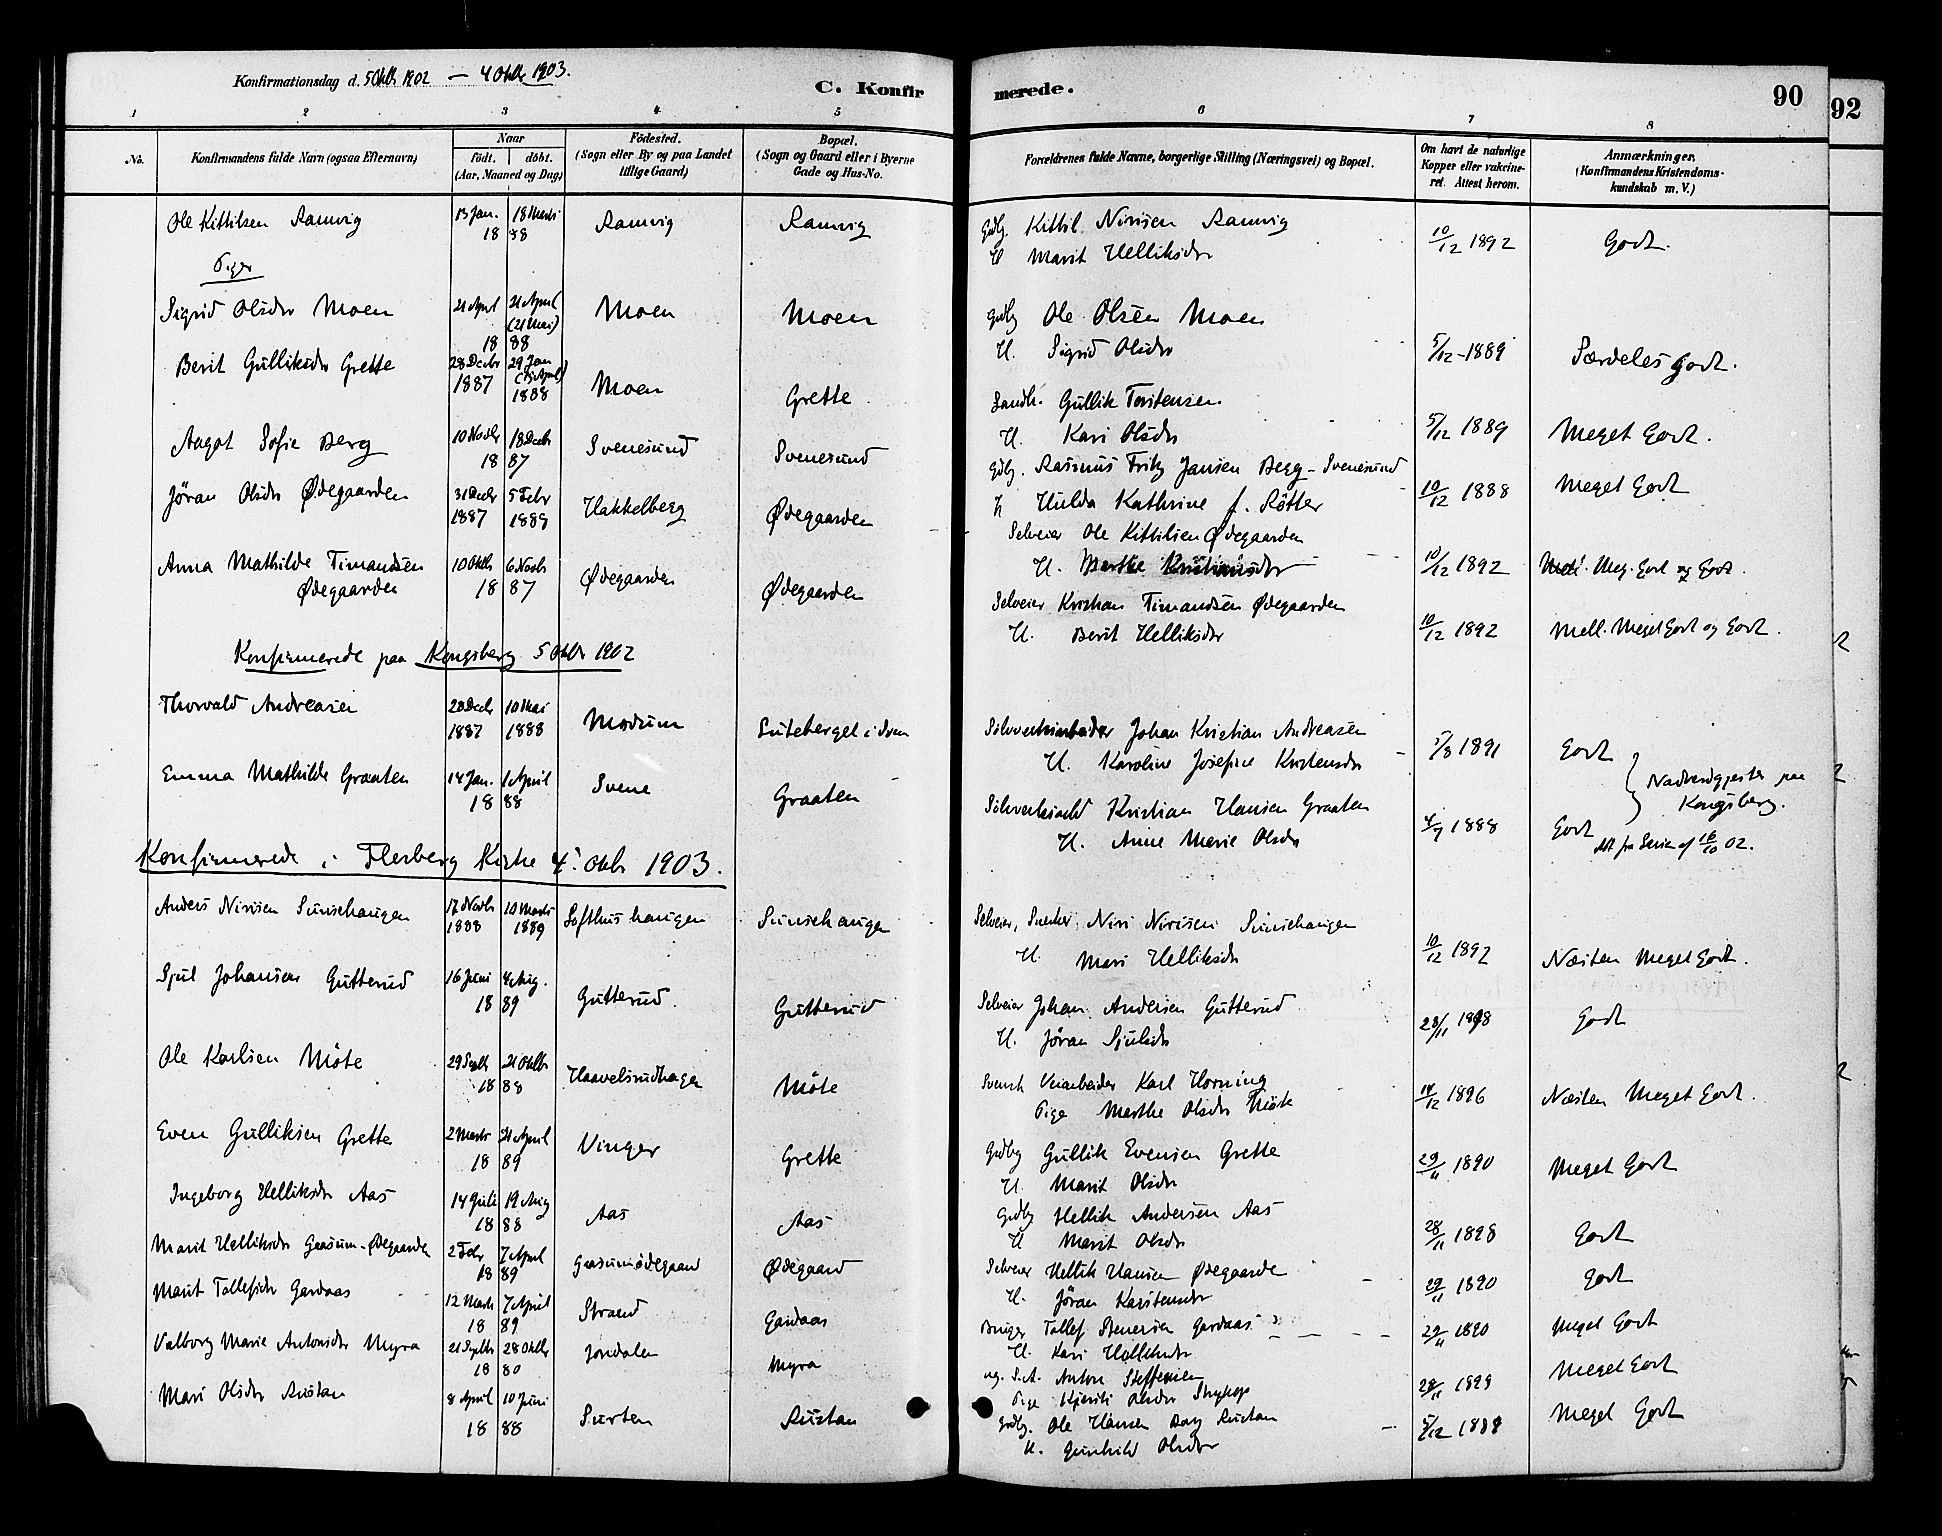 Konfirmationsdag d. 5 Oktbr 1902 — 4 Oktbr 1903.
C. Konfir
merede.
90
92
1 2 3 4 5 6 7 8
No.
Konfirmandens fulde Navn (ogsaa Efternavn)
Naar
födt. döbt.
(Aar, Maaned og Dag)
Födested.
(Sogn eller By og paa Landet
tillige Gaard)
Bopæl.
(Sogn og Gaard eller i Byerne
Gade og Hus-No.
Forældrenes fulde Navne, borgerlige Stilling (Næringsvei) og Bopæl.
Om havt de naturlige
Kopper eller vakcine-
ret. Attest herom.
Anmærkninger.
(Konfirmandens Kristendoms-
kundskab m. V.)
Ole Kittilsen Ramvig 13 Jan. 18 Marts 1888 Ramvig Ramvig Gdbg. Kittil Nirisen Ramvig
H Marit Helliksdr 10/12 1892 Godt.
Piger
Sigrid Olsdr Moen 21 April 21 April (21 Mai) 1888 Moen Moen Gdbg Ole Olsen Moen
H. Sigrid Olsdr 5/12 1889 Særdeles Godt.
Berit Gulliksdr Grette 28 Decbr 1887 29 Jan 1888 Moen Grette Landh. Gullik Torstensen.
H. Kari Olsdr 5/12 1889 Meget Godt.
Aagot Sofie Berg 10 Novbr 18 Decbr 1887 Svenesund Svenesund Gdbg. Rasmus Fritz Jansen Berg - Svenesund
H Hulda Kathrine f. Rötter 10/12 1888 Meget Godt
Jöran Olsdr Ødegaarden 31 Decbr 1887 5 Febr 1889 Hakkelberg Ødegaarden Selveier Ole Kittilsen Ødegaarden
H. Berthe Kristiansdr 10/12 1892 Mell. Meg. Godt og Godt.
Anna Mathilde Timandsen
Ødegaarden 10 Oktbr 6 Novbr 1887 Ødegaarden Ødegaarden Selveier Kristian Timandsen Ødegaarden
H. Berit Helliksdr 10/12 1892 Mell. Meget Godt og Godt.
Konfirmerede paa Kongsberg 5 Oktbr 1902
Thorvald Andreasen 28 Decbr 1887 10 Mai 1888 Modum Johan Kristian Andreasen
H. Karoline Josefine Kristensdr 1891 Godt
Emma Mathilde Graaten 14 Jan. 1 April 1888 Svene Graaten Kristian Hansen Graaten
H. Anne Marie Olsdr 1888 Godt
Nadverdgjester paa
Kongsberg.
16/10 02.
Konfirmerede i Flesberg Kirke 4. Oktbr 1903.
Anders Nirisen Sunsehaugen 17 Novbr 1888 10 Marts 1889 Softhushaugen Sunsehaugen Selveier, Snedker Niri Nirisen Sunsehaugen
H. Mari Helliksdr 10/12 1892 Næsten Meget Godt.
Sjul Johansen Gutterud 16 Juni 4 Aug. 1889 Gutterud. Gutterud Selveier Johan Andersen Gutterud
H. Jöran Sjulsdr 28/11 1898 Godt
Ole Karlsen Möte 29 Septbr 21 Oktbr 1888 Haavelsrudhagen Möte Svensk Veiarbeider Karl Horning
Pige Marthe Olsdr Möte 14/12 1896 Næsten Meget Godt.
Even Gulliksen Grette 2 Marts 21 April 1889 Vinger Grette Gdbg Gullik Evensen Grette
H. Marit Olsdr 29/11 1890 Meget Godt
Ingeborg Helliksdr Aas 14 Juli 19 Aug 1888 Aas Aas Gdbg Hellik Andersen Aas
H Marit Olsdr 28/11 1898 Godt
Marit Helliksdr Gaasum-Ødegaarden 2 Febr 7 April 1889 Gaasumødegaard Ødegaard Selveier Hellik Hansen Ødegaarde
H. Jöran Karstensdr 29/11 1890 Godt
Marit Tollefsdr Gardaas 12 Marts 7 April 1889 Strand Gardaas Bruger Tollef Stenersen Gardaas
H. Kari 29/11 1890 Meget Godt
Valborg Marie Antonsdr Myra 21 Septbr 28 Oktbr 1880 Jondalen Myra Anton Steffensen
Pige Kjersti Olsdr 28/11 1898 Meget Godt
Mari Olsdr Rustan 8 April 10 Juni 1888 Surten Rustan Gdbg. Ole Hansen Rustan
H. Gunhild Olsdr 5/12 1889 Meget Godt